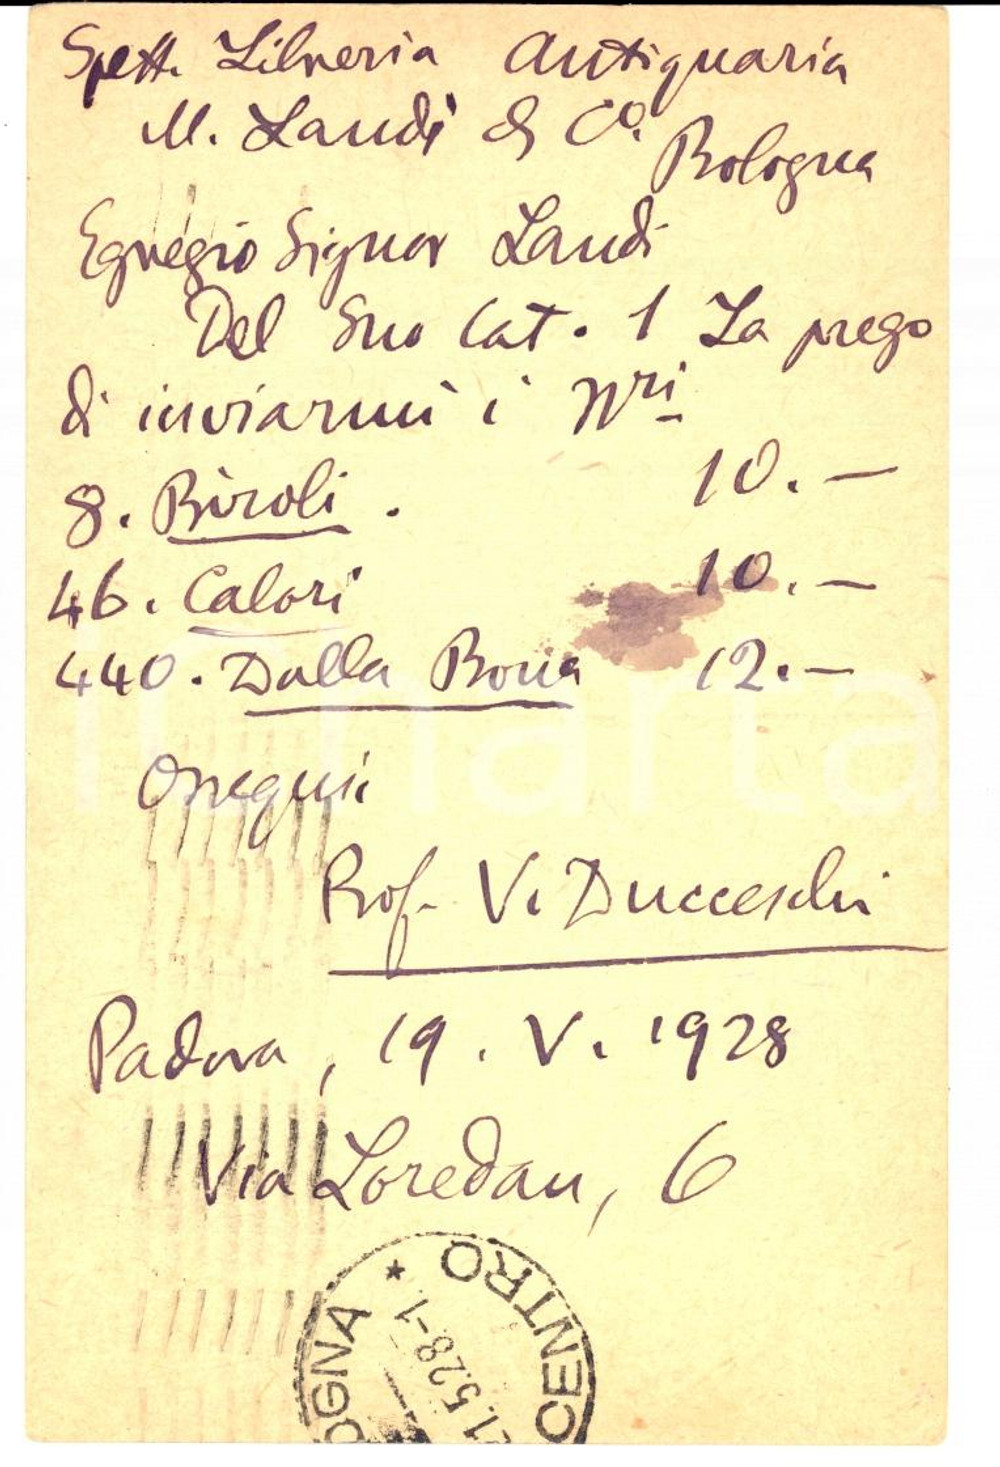 Spett. Libreria Antiquaria
M. Landi & Cº.
Bologna
Egregio Signor Landi
Del Suo Cat. 1 La prego
di inviarmi i Nri
8. Biroli. 10.—
46. Calori 10.—
440. Dalla Bona 12.—
Ossequi
Prof. V. Ducceschi
Padova, 19. V. 1928
Via Loredan, 6
OGNA * CENTRO
21.5.28-1